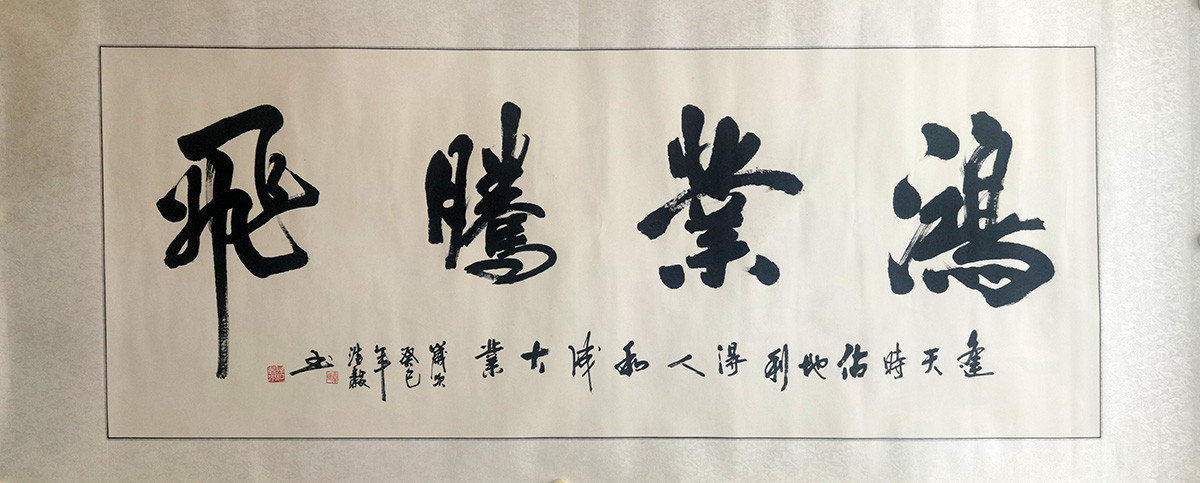 鴻業騰飛
逢天時佔地利得人和成大業
歲次
癸巳
年
書